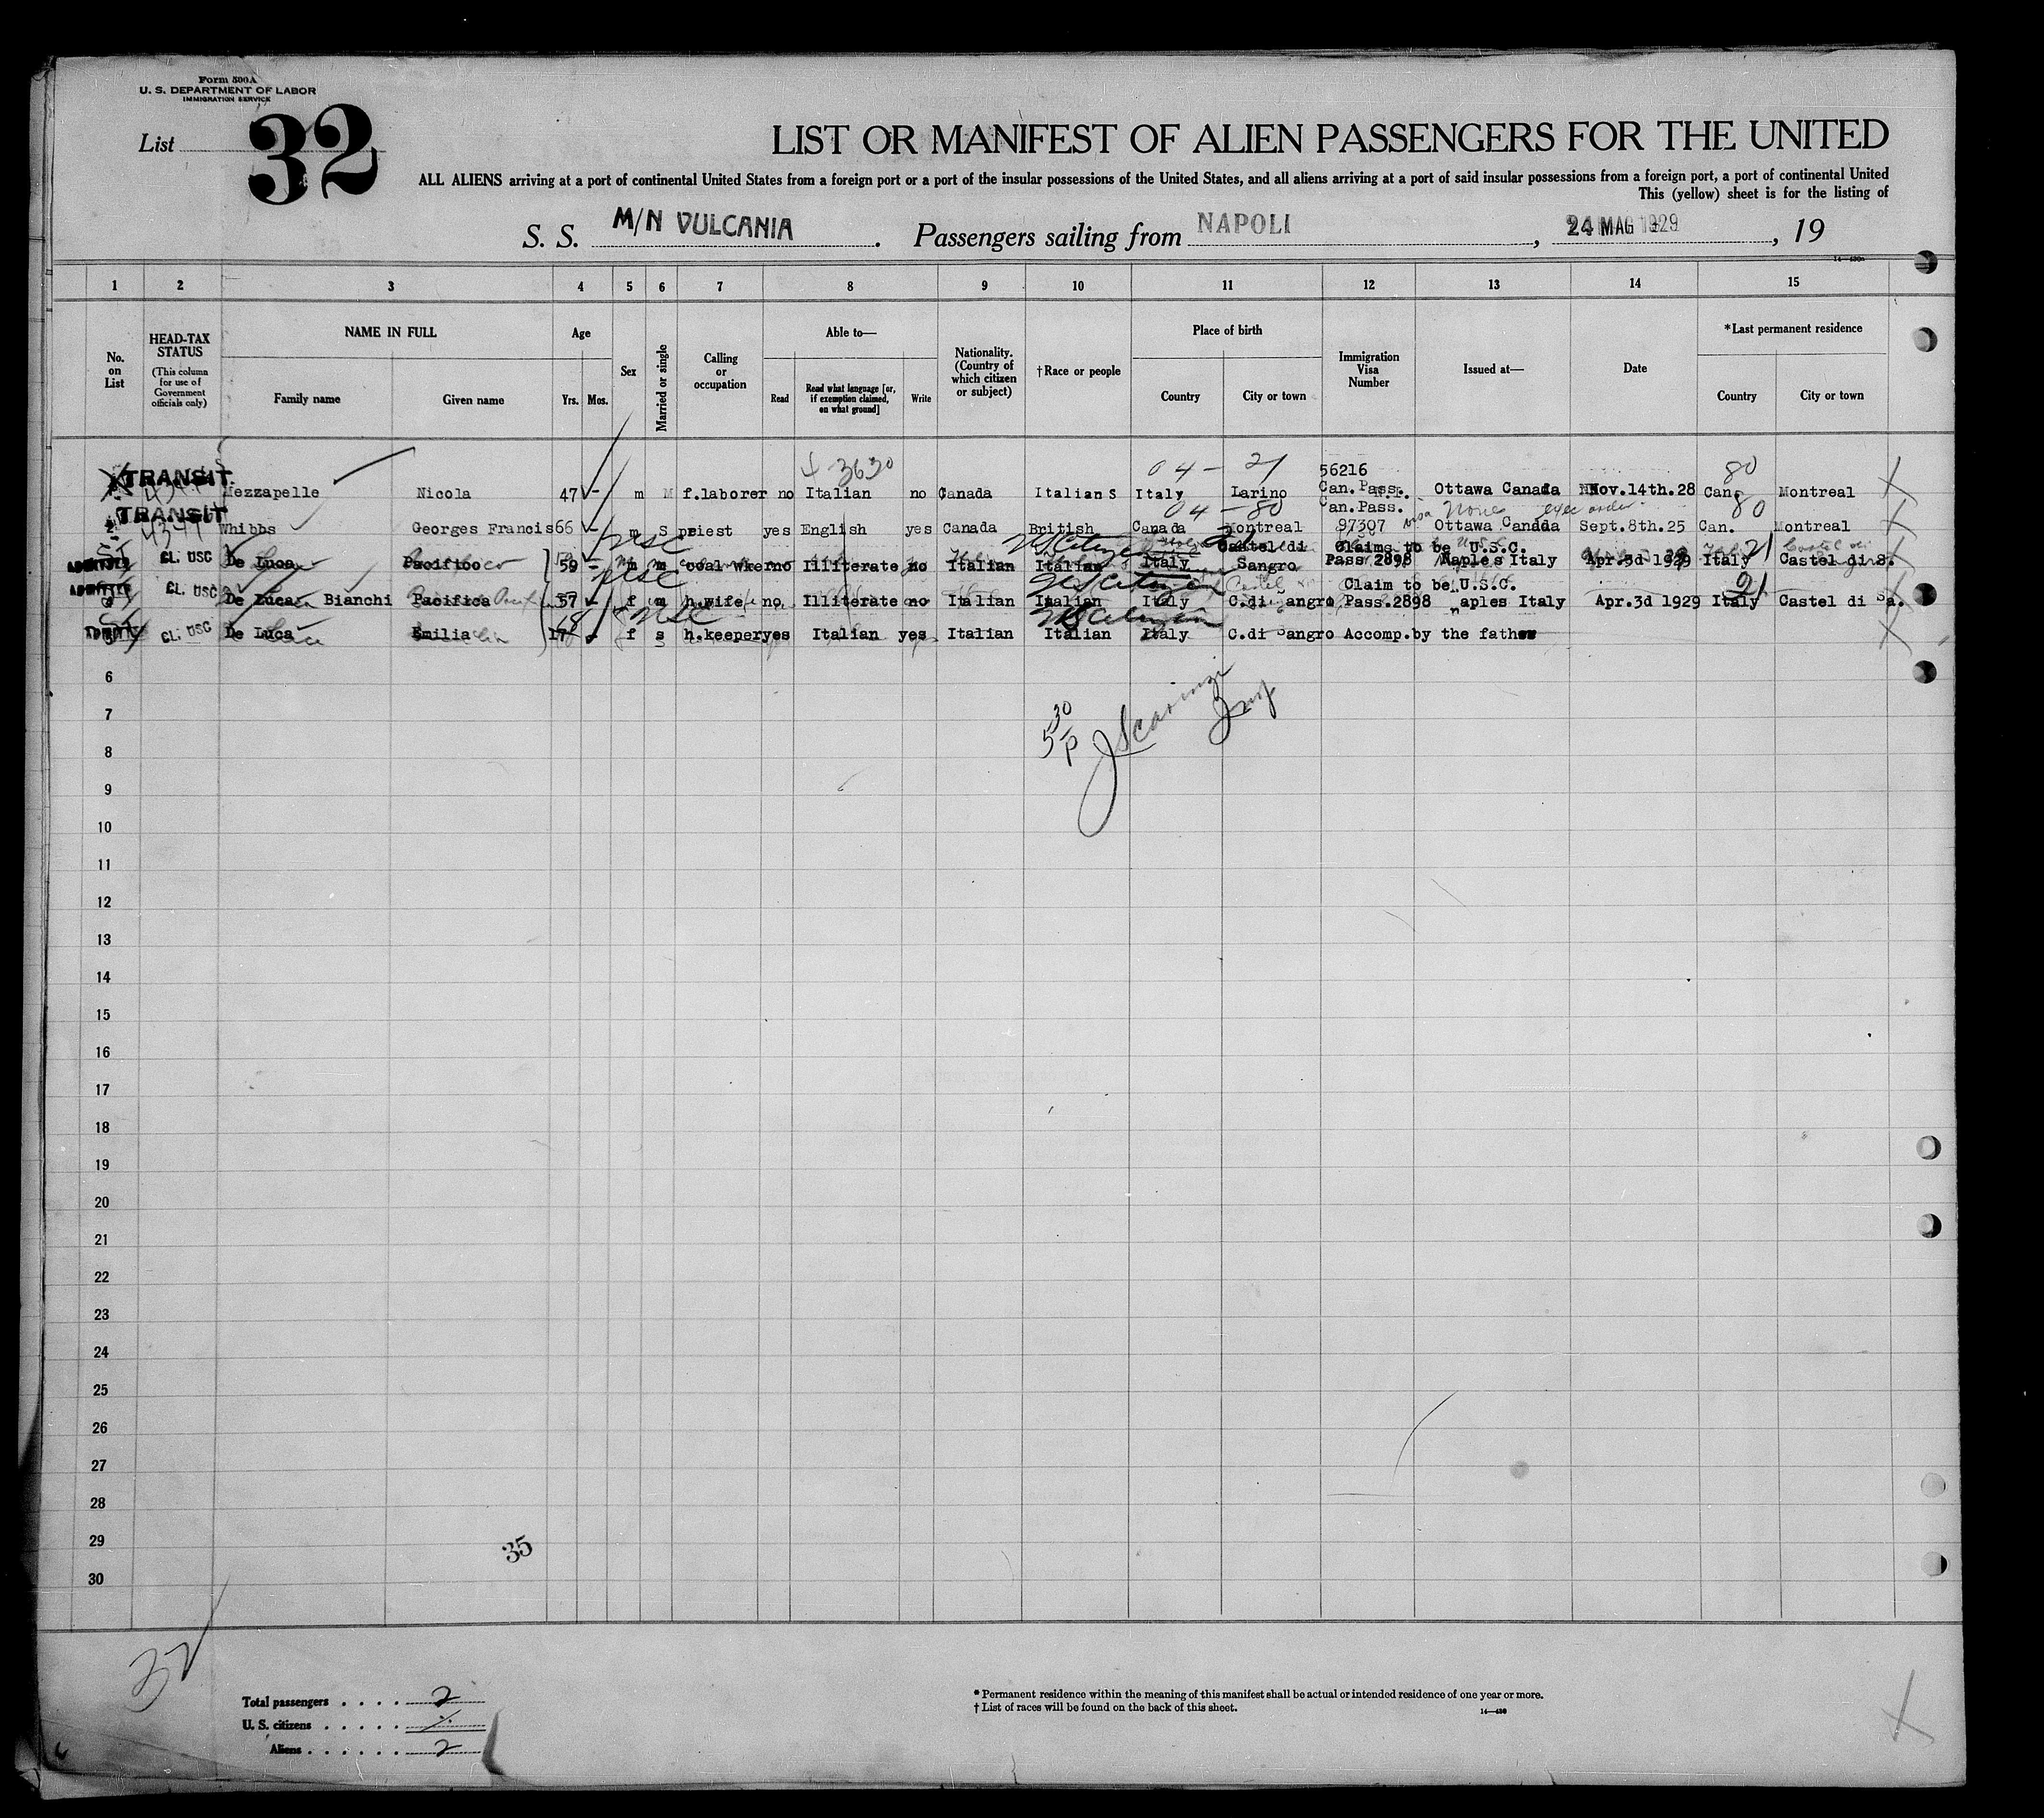 Form 500A
U. S. DEPARTMENT OF LABOR
IMMIGRATION SERVICE
List 32
LIST OR MANIFEST OF ALIEN PASSENGERS FOR THE UNITED
ALL ALIENS arriving at a port of continental United States from a foreign port or a port of the insular possessions of the United States, and all aliens arriving at a port of said insular possessions from a foreign port, a port of continental United
This (yellow) sheet is for the listing of
S. S. M/N VULCANIA. Passengers sailing from NAPOLI, 24 MAG 1929, 19
1 2 3 4 5 6 7 8 9 10 11 12 13 14 15
No. on List
HEAD-TAX STATUS
(This column for use of Government officials only)
NAME IN FULL
Family name Given name
Age
Yrs. Mos.
Sex
Married or single
Calling or occupation
Able to—
Read Read what language [or, if exemption claimed, on what ground] Write
Nationality. (Country of which citizen or subject)
†Race or people
Place of birth
Country City or town
Immigration Visa Number
Issued at—
Date
*Last permanent residence
Country City or town
3630 04 - 21 56216 80
TRANSIT Mezzapelle Nicola 47 - m M f.laborer no Italian no Canada Italian S Italy Larino Can.Pass. Ottawa Canada Nov.14th.28 Can. Montreal
04 - 80 Can.Pass. visa None exec order 80
TRANSIT 2 Whibbs Georges Francis 66 - m S priest yes English yes Canada British Canada Montreal 97307 Ottawa Canada Sept.8th.25 Can. Montreal
USC US Citizen Castel di Claims to be U.S.C. 21
ADMITTED CL. USC De Luca Pacifico 59 - m m coal wker no Illiterate no Italian Italian Italy Sangro Pass 2898 Naples Italy Apr.3d 1929 Italy Castel di S.
USC US Citizen Claim to be U.S.C. 21
ADMITTED CL. USC De Luca Bianchi Pacifica 57 - f m h.wife no Illiterate no Italian Italian Italy C.di Sangro Pass.2898 Naples Italy Apr.3d 1929 Italy Castel di Sa.
18 USC US Citizen
ADMITTED CL. USC De Luca Emilia 17 - f s h.keeper yes Italian yes Italian Italian Italy C.di Sangro Accomp.by the father
6
7
5 30 P J Scarinzi Insp
8
9
10
11
12
13
14
15
16
17
18
19
20
21
22
23
24
25
26
27
28
29
35
30
32
Total passengers . . . . 2
U. S. citizens . . . . .
Aliens . . . . . . 2
* Permanent residence within the meaning of this manifest shall be actual or intended residence of one year or more.
† List of races will be found on the back of this sheet.
14—430